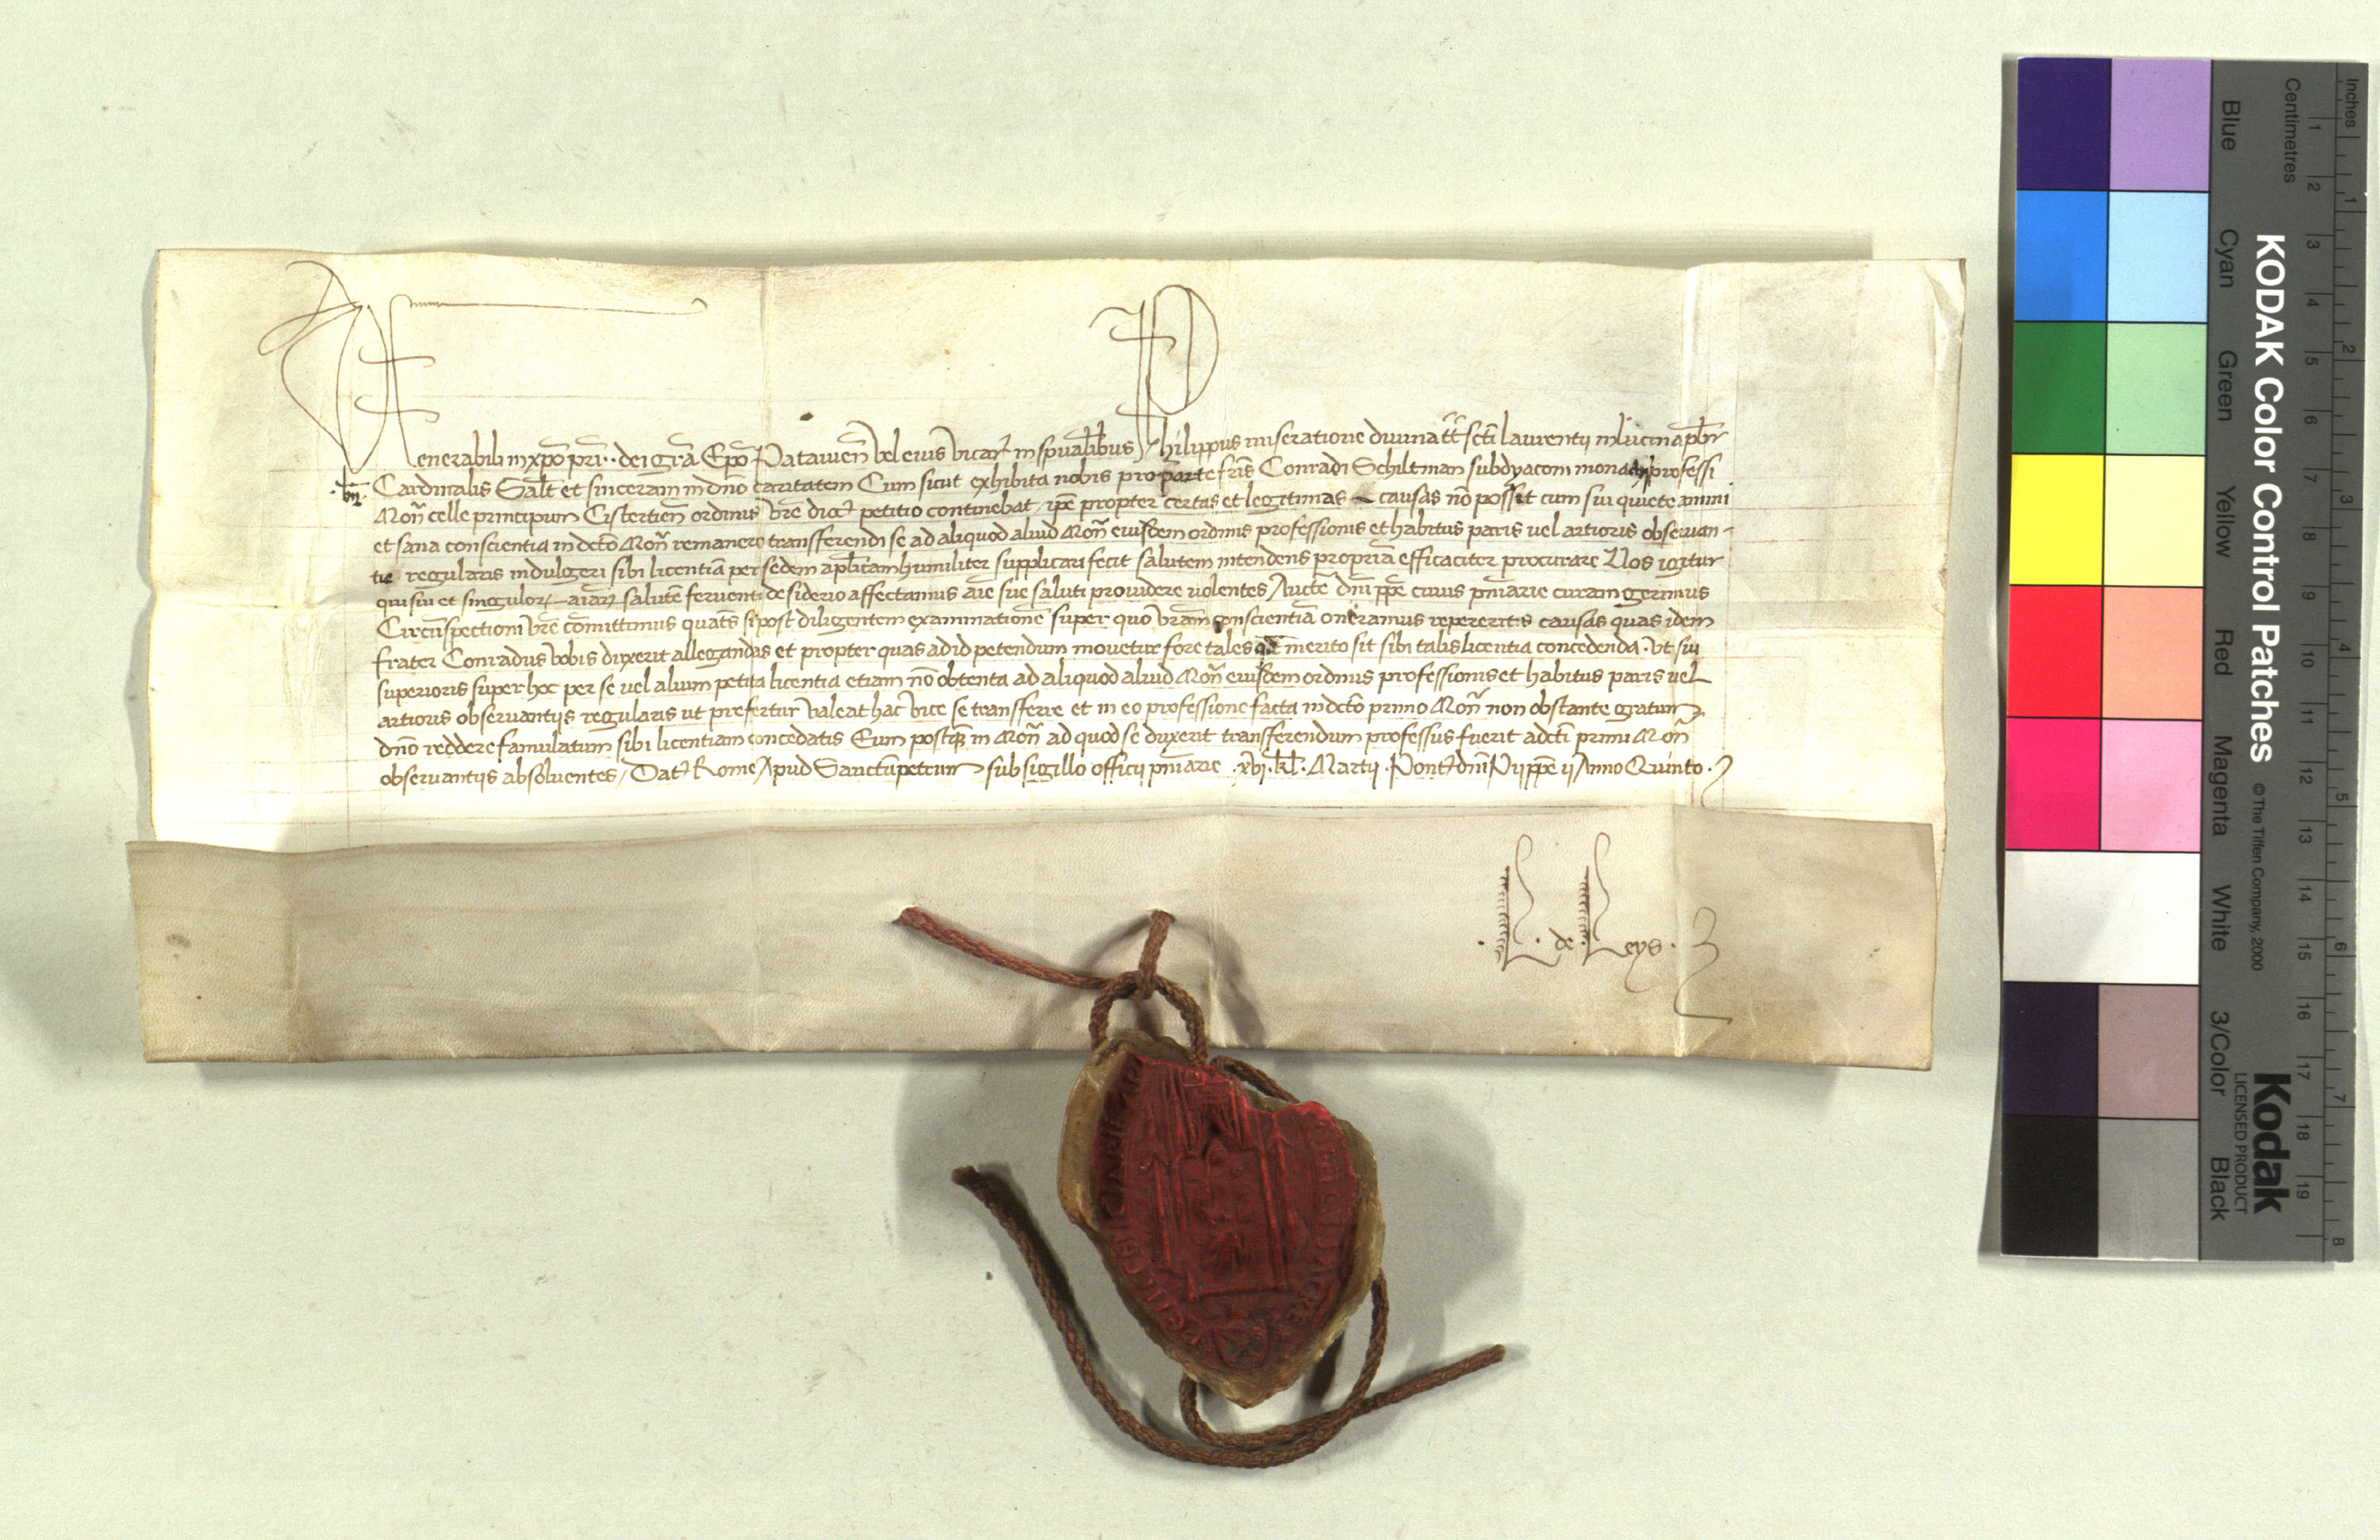 Venerabili in xp̄o pr̄i .. dei gr̄a Ep̄o Patauien̄ vel eius vicar̄ in sp̄ualibus Philippus miseratione diuina tt̄ scti laurentij in lucina pb̄r
Cardinalis Salt̄ et sinceram in dn̄o caritatem Cum sicut exhibita nobis pro parte fr̄is Conradi Schiltman subdyaconi monachi professi
Mon̄ celle principum Cistertien̄ ordinis vr̄e dioc̄ petitio continebat ip̄e propter certas et legitimas causas nō possit cum sui quiete animi
et sana conscientia in dc̄to Mon̄ remanere transferendi se ad aliquod aliud Mon̄ eiusdem ordinis professionis et habitus paris uel artioris obseruan-
tie regularis indulgeri sibi licentiā per sedem apl̄icam humiliter supplicari fecit salutem intendens propriā efficaciter procurare Nos igitur
qui sui et singulor̄ aīar̄ salutē feruenti desiderio affectamus aīe sue saluti prouidere uolentes Aucte dn̄i pp̄e cuius pn̄iarie curam gerimus
Circūspectioni vr̄e cōmittimus quatn̄s si post diligentem examinationē super quo vr̄am conscientiā oneramus repereritis causas quas idem
frater Conradus vobis duxerit allegandas et propter quas ad id petendum mouetur fore tales qd̄ merito sit sibi talis licentia concedenda. vt sui
superioris super hoc per se uel alium petita licentia etiam nō obtenta ad aliquod aliud Mon̄ eiusdem ordinis professionis et habitus paris uel
artioris obseruantijs regularis ut prefertur valeat hac vice se transferre et in eo professione facta in dc̄to primo Mon̄ non obstante gratum
dn̄o reddere famulatum sibi licentiam concedatis Eum postq̄ in Mon̄ ad quod se duxerit transferendum professus fuerit a dc̄ti primi Mon̄
obseruantijs absoluentes / Dat̄ Rome Apud Sanctūpetrum sub sigillo officij pn̄iarie .xvj. kl̄. Martij .Pont̄ dn̄i Pij pp̄e ij Anno Quinto.
.R. de Reys.
KODAK Color Control Patches
© The Tiffen Company, 2000
Kodak
LICENSED PRODUCT
Blue Cyan Green Yellow Red Magenta White 3/Color Black
Inches 1 2 3 4 5 6 7 8
Centimetres 1 2 3 4 5 6 7 8 9 10 11 12 13 14 15 16 17 18 19